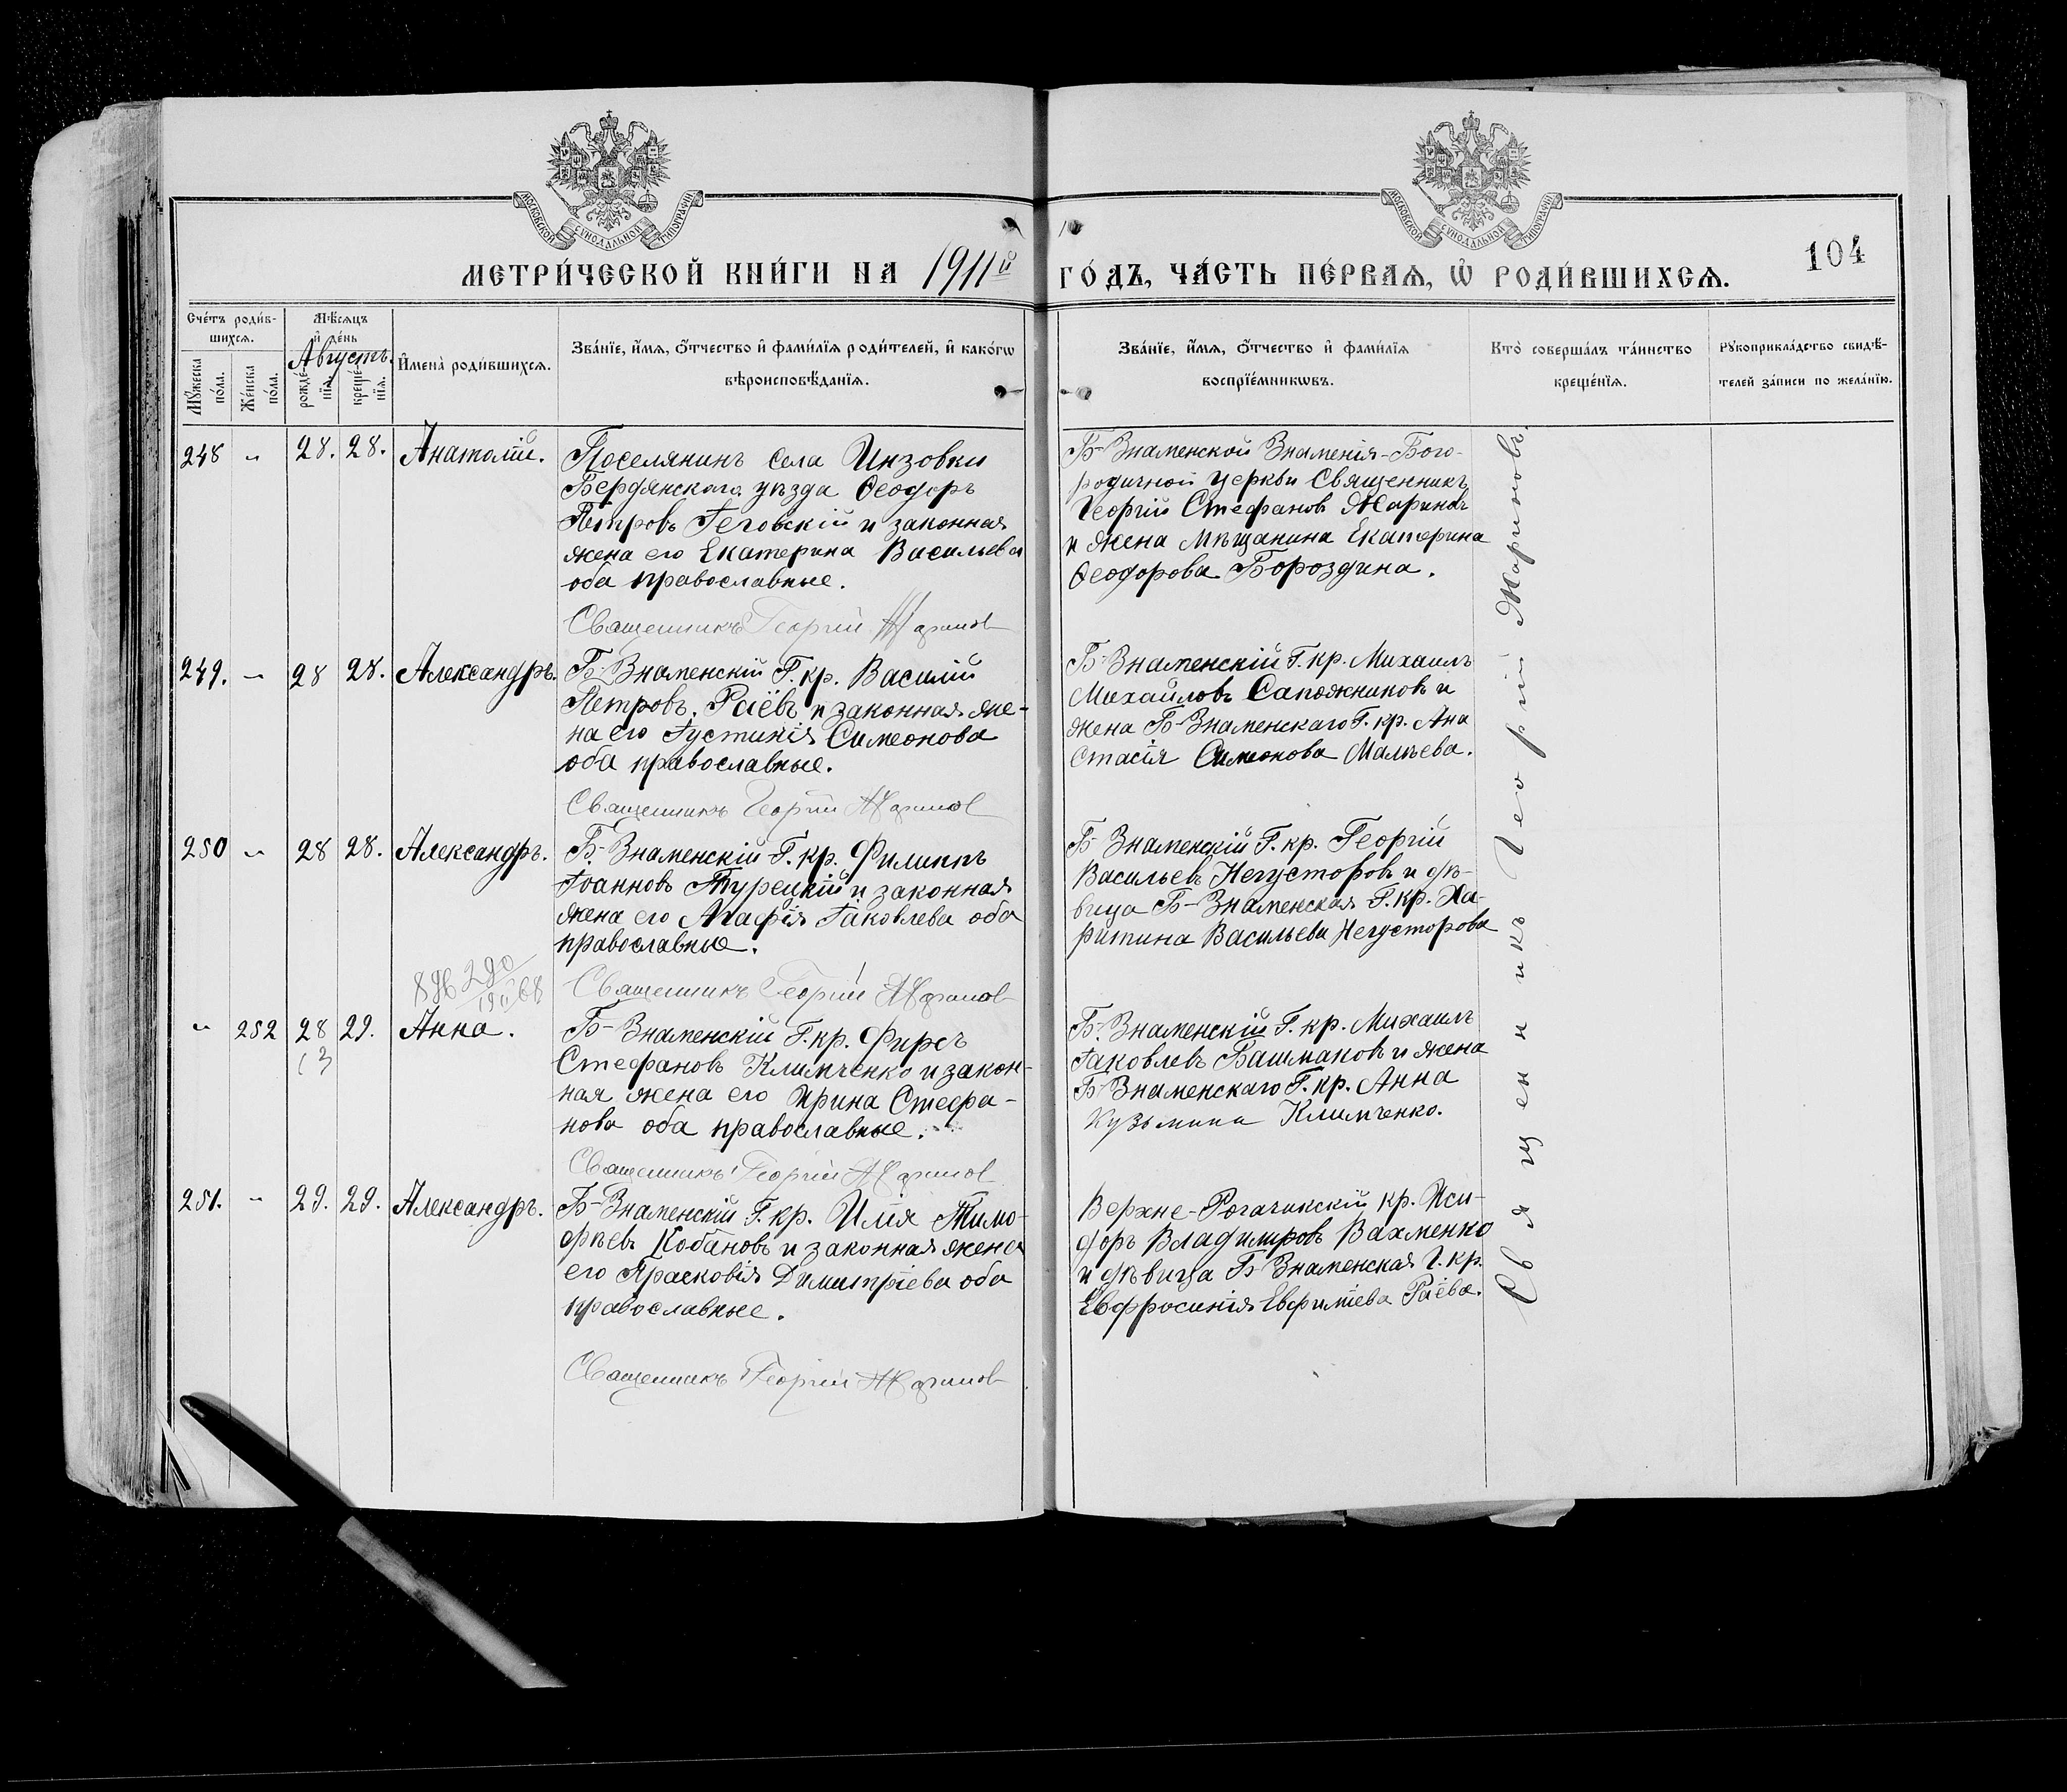 МОСКОВСКОЙ СѴНОДАЛЬНОЙ ТИПОГРАФІИ
МОСКОВСКОЙ СѴНОДАЛЬНОЙ ТИПОГРАФІИ
МЕТРИ́ЧЕСКОЙ КНИ́ГИ НА 1911й ГО́ДЪ, ЧА́СТЬ ПЕ́РВАѦ, Ѡ҆ РОДИ́ВШИХСѦ.
104
Сче́тъ роди́в-
шихсѧ.
Мѣ́сѧцъ
и҆ де́нь
Августъ.
Мꙋ́жеска
по́ла.
Же́нска
по́ла.
рожде́-
нїѧ.
креще́-
нїѧ.
И҆мена̀ роди́вшихсѧ.
Зва́нїе, и҆́мѧ, ѻ҆́тчество и҆ фами́лїѧ роди́телей, и҆ како́гѡ
вѣроисповѣ́данїѧ.
Зва́нїе, и҆́мѧ, ѻ҆́тчество и҆ фами́лїѧ
воспрїе́мникѡвъ.
Кто̀ соверша́лъ та́инство
креще́нїѧ.
Рꙋкоприкла́дство свидѣ́-
телей за́писи по жела́нїю.
248 „ 28. 28. Анатолій.
Поселянинъ села Инзовки
Бердянскаго уѣзда Ѳеодоръ
Петровъ Геговскій и законная
жена его Екатерина Васильева
оба православные.
Священникъ Георгій Жаринов
Б-Знаменской Знаменія-Бого-
родичной церкви Священникъ
Георгій Стефановъ Жариновъ
и жена мѣщанина Екатерина
Ѳеодорова Бороздина.
249. „ 28 28. Александръ.
Б-Знаменскій Г. кр. Василій
Петровъ Раёвъ и законная же-
на его Іустинія Симеонова
оба православные.
Священникъ Георгій Жаринов
Б-Знаменскій Г. кр. Михаилъ
Михайловъ Сапожниковъ и
жена Б-Знаменскаго Г. кр. Ана
стасія Симеонова Мальева.
250 „ 28 28. Александръ.
Б-Знаменскій Г. кр. Филиппъ
Іоанновъ Турецкій и законная
жена его Агафія Іаковлева оба
православные.
Священникъ Георгій Жаринов
Б-Знаменскій Г. кр. Георгій
Васильевъ Негусторовъ и дѣ-
вица Б-Знаменская Г. кр. Ха-
ритина Васильева Негусторова
„ 252 28 29. Анна.
Б-Знаменскій Г. кр. Фирсъ
Стефановъ Климченко и закон-
ная жена его Ирина Стефа-
нова оба православные.
Священникъ Георгій Жаринов
Б-Знаменскій Г. кр. Михаилъ
Іаковлевъ Башмаковъ и жена
Б-Знаменскаго Г. кр. Анна
Кузьмина Климченко.
251. „ 29. 29. Александръ.
Б-Знаменскій Г. кр. Илія Тимо-
фѣевъ Кобановъ и законная жена
его Парасковія Димитріева оба
православные.
Священникъ Георгій Жаринов
Верхне-Рогачикскій кр. Иси-
доръ Владимировъ Вахменко
и дѣвица Б-Знаменская Г. кр.
Евфросинія Евфиміева Раёва.
Священникъ Георгій Жариновъ.